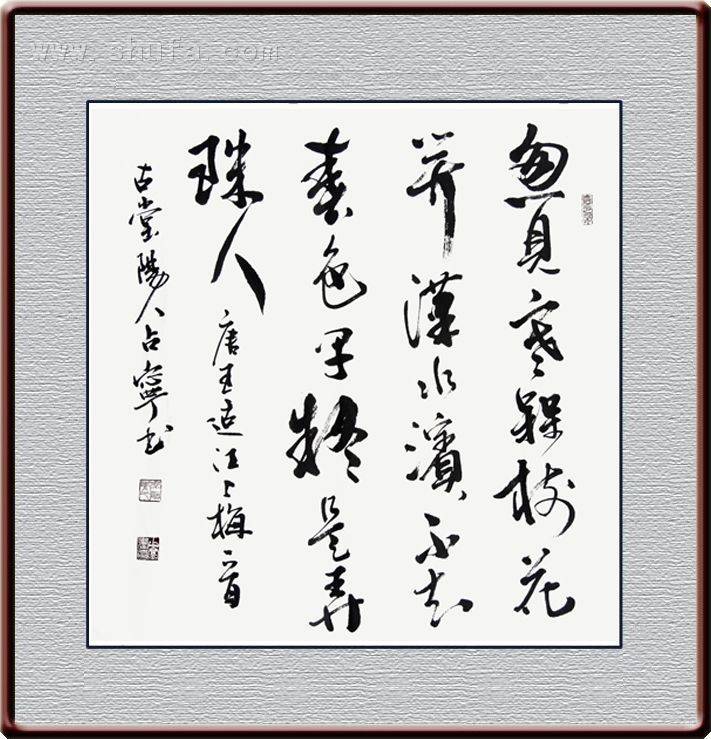 www.shuifa.com
忽見寒槑树花
开漢水濱不知
春色早疑是弄
珠人
唐王适江上梅一首
古堂陽人占寧书